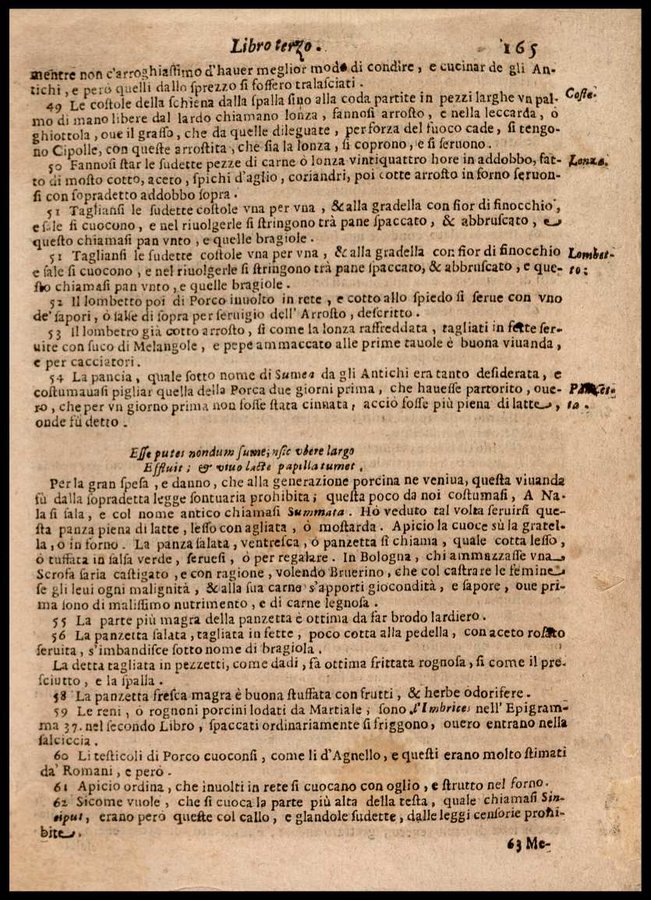 Libro terzo. 165
mentre non c'arroghiaſſimo d'hauer meglior modo di condire, e cucinar de gli An-
tichi, e però quelli dallo ſprezzo ſi foſſero tralaſciati.
49 Le coſtole della ſchiena dalla ſpalla ſino alla coda partite in pezzi larghe vn pal- Coſte.
mo di mano libere dal lardo chiamano lonza, fannoſi arroſto, e nella leccarda, ò
ghiottola, oue il graſſo, che da quelle dileguate, per forza del fuoco cade, ſi tengo-
no Cipolle, con queſte arroſtita, che ſia la lonza, ſi coprono, e ſi ſeruono.
50 Fannoſi ſtar le ſudette pezze di carne ò lonza vintiquattro hore in addobbo, fat- Lonza.
to di moſto cotto, aceto, ſpichi d'aglio, coriandri, poi cotte arroſto in forno ſeruon-
ſi con ſopradetto addobbo ſopra.
51 Taglianſi le ſudette coſtole vna per vna, & alla gradella con fior di finocchio,
e ſale ſi cuocono, e nel riuolgerle ſi ſtringono trà pane ſpaccato, & abbruſcato, e
queſto chiamaſi pan vnto, e quelle bragiole.
51 Taglianſi le ſudette coſtole vna per vna, & alla gradella con fior di finocchio Lombet-
e ſale ſi cuocono, e nel riuolgerle ſi ſtringono trà pane ſpaccato, & abbruſcato, e que- to:
ſto chiamaſi pan vnto, e quelle bragiole.
52 Il lombetto poi di Porco inuolto in rete, e cotto allo ſpiedo ſi ſerue con vno
de' ſapori, ò ſalſe di ſopra per ſeruigio dell' Arroſto, deſcritto.
53 Il lombetto già cotto arroſto, ſi come la lonza raffreddata, tagliati in fette ſer-
uite con ſuco di Melangole, e pepe ammaccato alle prime tauole è buona viuanda,
e per cacciatori.
54 La pancia, quale ſotto nome di Sumea da gli Antichi era tanto deſiderata, e
coſtumauaſi pigliar quella della Porca due giorni prima, che haueſſe partorito, oue- Pancet-
ro, che per vn giorno prima non foſſe ſtata cinnata, acciò foſſe più piena di latte, ta.
onde fù detto.
Eſſe putes nondum ſumen; ſic vbere largo
Effluit; & viuo lacte papilla tumet.
Per la gran ſpeſa, e danno, che alla generazione porcina ne veniua, queſta viuanda
fù dalla ſopradetta legge ſontuaria prohibita; queſta poco da noi coſtumaſi, A Na-
la ſi ſala, e col nome antico chiamaſi Summata. Hò veduto tal volta ſeruirſi que-
ſta panza piena di latte, leſſo con agliata, ò moſtarda. Apicio la cuoce sù la gratel-
la, ò in forno. La panza ſalata, ventreſca, ò panzetta ſi chiama, quale cotta leſſo,
ò tuffata in ſalſa verde, ſerueſi, ò per regalare. In Bologna, chi ammazzaſſe vna
Scrofa ſaria caſtigato, e con ragione, volendo Bruerino, che col caſtrare le femine
ſe gli leui ogni malignità, & alla ſua carne s'apporti giocondità, e ſapore, oue pri-
ma ſono di maliſſimo nutrimento, e di carne legnoſa.
55 La parte più magra della panzetta è ottima da far brodo lardiero.
56 La panzetta ſalata, tagliata in fette, poco cotta alla pedella, con aceto roſato
ſeruita, s'imbandiſce ſotto nome di bragiola.
La detta tagliata in pezzetti, come dadi, fa ottima frittata rognoſa, ſi come il pre-
ſciutto, e la ſpalla.
58 La panzetta freſca magra è buona ſtuffata con frutti, & herbe odorifere.
59 Le reni, ò rognoni porcini lodati da Martiale, ſono l'Imbrices nell' Epigram-
ma 37. nel ſecondo Libro, ſpaccati ordinariamente ſi friggono, ouero entrano nella
ſalciccia.
60 Li teſticoli di Porco cuoconſi, come li d'Agnello, e queſti erano molto ſtimati
da' Romani, e però.
61 Apicio ordina, che inuolti in rete ſi cuocano con oglio, e ſtrutto nel forno.
62 Sicome vuole, che ſi cuoca la parte più alta della teſta, quale chiamaſi Sin-
ciput, erano però queſte col callo, e glandole ſudette, dalle leggi cenſorie prohi-
bite.
63 Me-